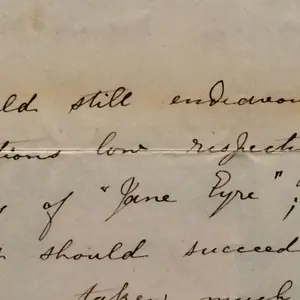 ld still endeavour
tions low respecti
of "Jane Eyre";
should succeed
taken much